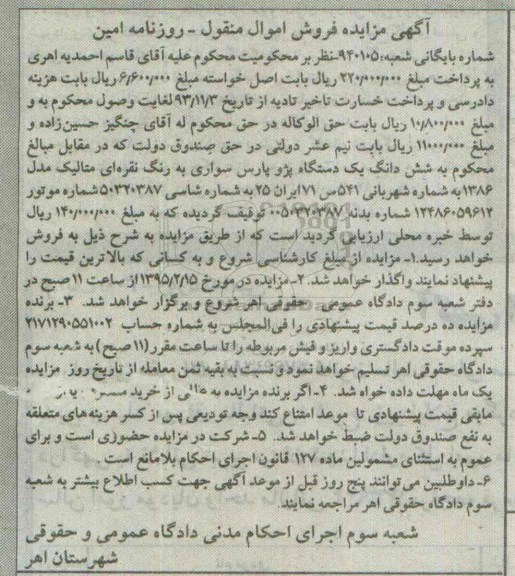 آگهی مزایده فروش اموال منقول - روزنامه امین
شماره بایگانی شعبه:۹۴۰۱۰۵-نظر بر محکومیت محکوم علیه آقای قاسم احمدیه اهری
به پرداخت مبلغ ۲۲۰/۰۰۰/۰۰۰ ریال بابت اصل خواسته مبلغ ۶/۶۰۰/۰۰۰ ریال بابت هزینه
دادرسی و پرداخت خسارت تاخیر تادیه از تاریخ ۹۳/۱۱/۳ لغایت وصول محکوم به و
مبلغ ۱۰/۸۰۰/۰۰۰ ریال بابت حق الوکاله در حق محکوم له آقای چنگیز حسین‌زاده و
مبلغ ۱۱۰۰۰/۰۰۰ ریال بابت نیم عشر دولتی در حق صندوق دولت که در مقابل مبالغ
محکوم به شش دانگ یک دستگاه پژو پارس سواری به رنگ نقره‌ای متالیک مدل
۱۳۸۶ به شماره شهربانی ۵۴۱ س ۷۱ ایران ۲۵ به شماره شاسی ۵۰۳۲۰۳۸۷ شماره موتور
۱۲۴۸۶۰۵۹۶۱۲ شماره بدنه ۰۰۵۰۳۲۰۳۸۷ توقیف گردیده که به مبلغ ۱۴۰/۰۰۰/۰۰۰ ریال
توسط خبره محلی ارزیابی گردید است که از طریق مزایده به شرح ذیل به فروش
خواهد رسید.۱- مزایده از مبلغ کارشناسی شروع و به کسانی که بالاترین قیمت را
پیشنهاد نمایند واگذار خواهد شد. ۲-مزایده در مورخ ۱۳۹۵/۲/۱۵ از ساعت ۱۱ صبح در
دفتر شعبه سوم دادگاه عمومی حقوقی اهر شروع و برگزار خواهد شد. ۳- برنده
مزایده ده درصد قیمت پیشنهادی را فی‌المجلس به شماره حساب ۲۱۷۱۲۹۰۵۵۱۰۰۲
سپرده موقت دادگستری واریز و فیش مربوطه را تا ساعت مقرر (۱۱ صبح) به شعبه سوم
دادگاه حقوقی اهر تسلیم خواهد نمود و نسبت به بقیه ثمن معامله از تاریخ روز مزایده
یک ماه مهلت داده خواه شد. ۴-اگر برنده مزایده به از خرید
مابقی قیمت پیشنهادی تا موعد امتناع کند وجه تودیعی پس از کسر هزینه‌های متعلقه
به نفع صندوق دولت ضبط خواهد شد. ۵- شرکت در مزایده حضوری است و برای
عموم به استثنای مشمولین ماده ۱۲۷ قانون اجرای احکام بلامانع است.
۶- داوطلبین می‌توانند پنج روز قبل از موعد آگهی جهت کسب اطلاع بیشتر به شعبه
سوم دادگاه حقوقی اهر مراجعه نمایند.
شعبه سوم اجرای احکام مدنی دادگاه عمومی و حقوقی
شهرستان اهر